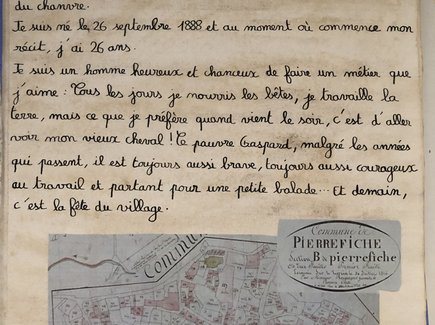 du chanvre.
Je suis né le 26 septembre 1888 et au moment où commence mon
récit, j'ai 26 ans.
Je suis un homme heureux et chanceux de faire un métier que
j'aime : Tous les jours je nourris les bêtes, je travaille la
terre, mais ce que je préfère quand vient le soir, c'est d'aller
voir mon vieux cheval ! Ce pauvre Gaspard, malgré les années
qui passent, il est toujours aussi brave, toujours aussi courageux
au travail et partant pour une petite balade... Et demain,
c'est la fête du village.
Commu
Commune de
PIERREFICHE
Section B de pierrefiche